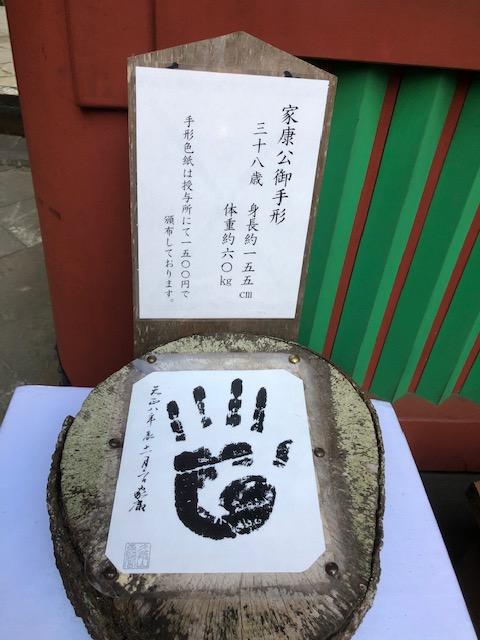 家康公御手形
三十八歳 身長約一五五cm
体重約六〇kg
手形色紙は授与所にて一五〇〇円で
頒布しております。
天正八年